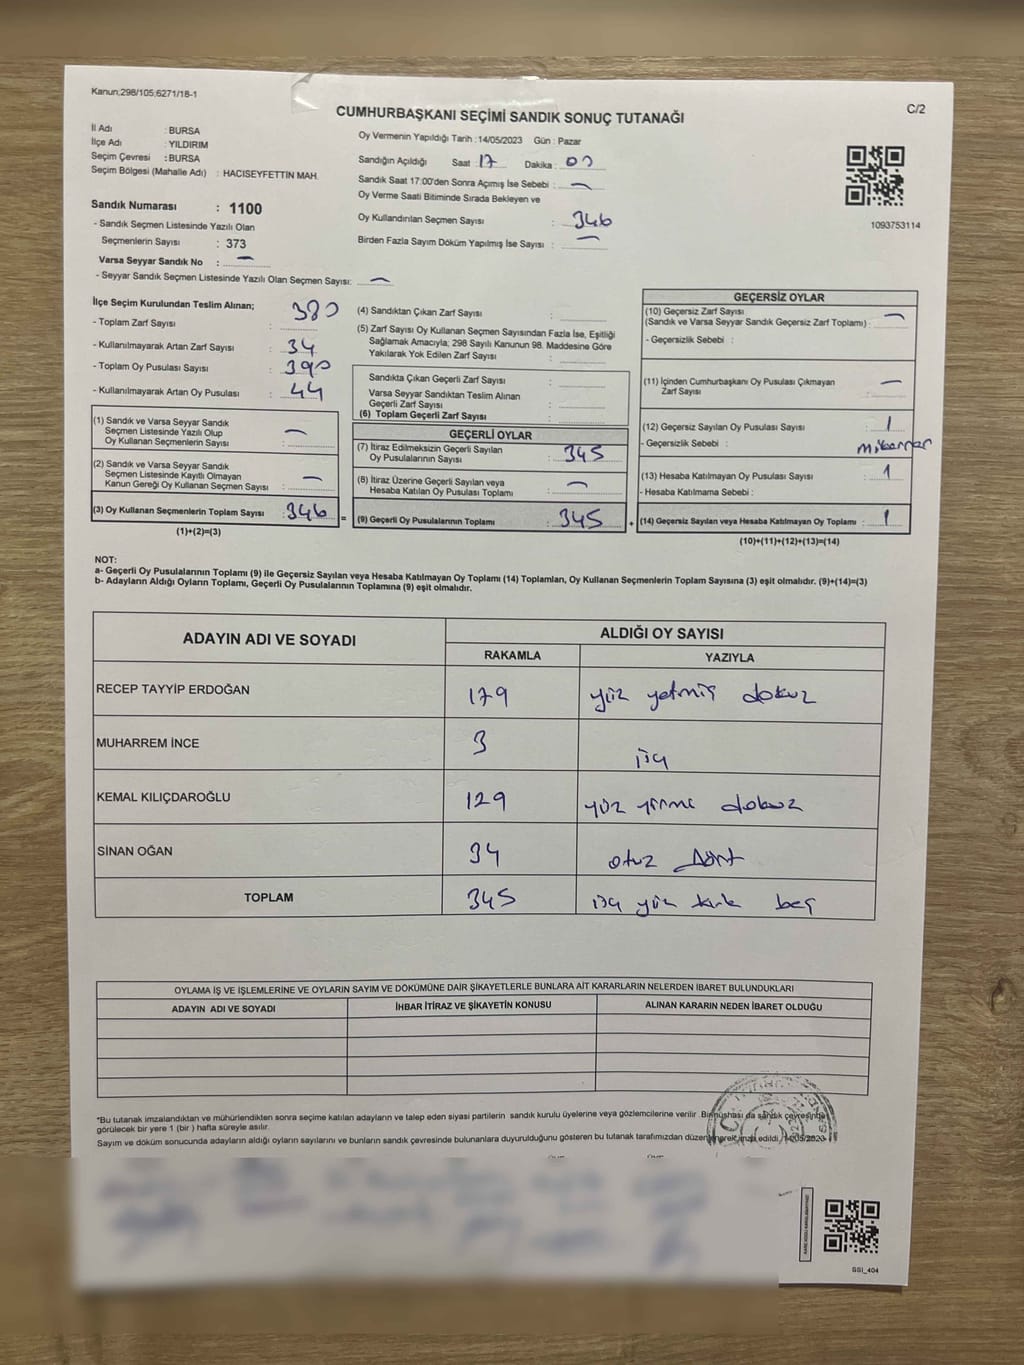 Kanun;298/105;6271/18-1
C/2
CUMHURBAŞKANI SEÇİMİ SANDIK SONUÇ TUTANAĞI
İl Adı : BURSA
İlçe Adı : YILDIRIM
Seçim Çevresi : BURSA
Seçim Bölgesi (Mahalle Adı) : HACISEYFETTİN MAH.
Sandık Numarası : 1100
- Sandık Seçmen Listesinde Yazılı Olan
Seçmenlerin Sayısı : 373
Varsa Seyyar Sandık No : —
- Seyyar Sandık Seçmen Listesinde Yazılı Olan Seçmen Sayısı: —
Oy Vermenin Yapıldığı Tarih : 14/05/2023 Gün : Pazar
Sandığın Açıldığı Saat : 17 Dakika : 00
Sandık Saat 17:00'den Sonra Açımış İse Sebebi : —
Oy Verme Saati Bitiminde Sırada Bekleyen ve
Oy Kullandırılan Seçmen Sayısı : 346
Birden Fazla Sayım Döküm Yapılmış İse Sayısı : —
1093753114
İlçe Seçim Kurulundan Teslim Alınan;
- Toplam Zarf Sayısı : 380
- Kullanılmayarak Artan Zarf Sayısı : 34
- Toplam Oy Pusulası Sayısı : 390
- Kullanılmayarak Artan Oy Pusulası : 44
(1) Sandık ve Varsa Seyyar Sandık
Seçmen Listesinde Yazılı Olup
Oy Kullanan Seçmenlerin Sayısı : —
(2) Sandık ve Varsa Seyyar Sandık
Seçmen Listesinde Kayıtlı Olmayan
Kanun Gereği Oy Kullanan Seçmen Sayısı : —
(3) Oy Kullanan Seçmenlerin Toplam Sayısı : 346 =
(1)+(2)=(3)
(4) Sandıktan Çıkan Zarf Sayısı :
(5) Zarf Sayısı Oy Kullanan Seçmen Sayısından Fazla İse, Eşitliği
Sağlamak Amacıyla; 298 Sayılı Kanunun 98. Maddesine Göre
Yakılarak Yok Edilen Zarf Sayısı :
Sandıkta Çıkan Geçerli Zarf Sayısı :
Varsa Seyyar Sandıktan Teslim Alınan
Geçerli Zarf Sayısı :
(6) Toplam Geçerli Zarf Sayısı :
GEÇERLİ OYLAR
(7) İtiraz Edilmeksizin Geçerli Sayılan
Oy Pusulalarının Sayısı : 345
(8) İtiraz Üzerine Geçerli Sayılan veya
Hesaba Katılan Oy Pusulası Toplamı : —
(9) Geçerli Oy Pusulalarının Toplamı : 345 +
GEÇERSİZ OYLAR
(10) Geçersiz Zarf Sayısı
(Sandık ve Varsa Seyyar Sandık Geçersiz Zarf Toplamı) : —
- Geçersizlik Sebebi :
(11) İçinden Cumhurbaşkanı Oy Pusulası Çıkmayan
Zarf Sayısı : —
(12) Geçersiz Sayılan Oy Pusulası Sayısı : 1
- Geçersizlik Sebebi :
(13) Hesaba Katılmayan Oy Pusulası Sayısı : 1
- Hesaba Katılmama Sebebi :
(14) Geçersiz Sayılan veya Hesaba Katılmayan Oy Toplamı : 1
(10)+(11)+(12)+(13)=(14)
NOT:
a- Geçerli Oy Pusulalarının Toplamı (9) ile Geçersiz Sayılan veya Hesaba Katılmayan Oy Toplamı (14) Toplamları, Oy Kullanan Seçmenlerin Toplam Sayısına (3) eşit olmalıdır. (9)+(14)=(3)
b- Adayların Aldığı Oyların Toplamı, Geçerli Oy Pusulalarının Toplamına (9) eşit olmalıdır.
ADAYIN ADI VE SOYADI
ALDIĞI OY SAYISI
RAKAMLA YAZIYLA
RECEP TAYYİP ERDOĞAN 179 yüz yetmiş dokuz
MUHARREM İNCE 3 üç
KEMAL KILIÇDAROĞLU 129 yüz yirmi dokuz
SİNAN OĞAN 34 otuz dört
TOPLAM 345 üç yüz kırk beş
OYLAMA İŞ VE İŞLEMLERİNE VE OYLARIN SAYIM VE DÖKÜMÜNE DAİR ŞİKAYETLERLE BUNLARA AİT KARARLARIN NELERDEN İBARET BULUNDUKLARI
ADAYIN ADI VE SOYADI İHBAR İTİRAZ VE ŞİKAYETİN KONUSU ALINAN KARARIN NEDEN İBARET OLDUĞU
*Bu tutanak imzalandıktan ve mühürlendikten sonra seçime katılan adayların ve talep eden siyasi partilerin sandık kurulu üyelerine veya gözlemcilerine verilir. Bir nüshası da sandık çevresinde
görülecek bir yere 1 (bir ) hafta süreyle asılır.
Sayım ve döküm sonucunda adayların aldığı oyların sayılarını ve bunların sandık çevresinde bulunanlara duyurulduğunu gösteren bu tutanak tarafımızdan düzenlenerek imza edildi. 14/05/2023
SSI_404